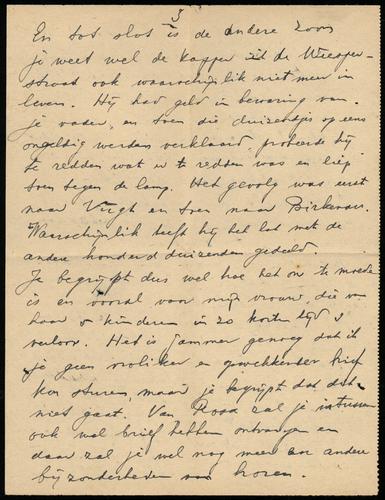 3
En tot slot is de andere zoon
je weet wel de kapper uit de Weesper-
straat ook waarschijnlijk niet meer in
leven. Hij had geld in bewaring van
je vader, en toen die duizendjes op eens
ongeldig werden verklaard, probeerde hij
te redden wat er te redden was en liep
toen tegen de lamp. Het gevolg was eerst
naar Vught en toen naar Birkenau.
Waarschijnlijk heeft hij het lot met de
andere honderd duizenden gedeeld.
Je begrijpt dus wel hoe het ons te moede
is en vooral voor mijn vrouw, die van
haar 5 kinderen in zo korten tijd 3
verloor. Het is jammer genoeg dat ik
je geen vroliker en opwekkender brief
kon sturen, maar je begrijpt dat dat
niet gaat. Van Rood zal je intussen
ook wel brief hebben ontvangen en
daar zal je wel nog meer en andere
bijzonderheden van horen.